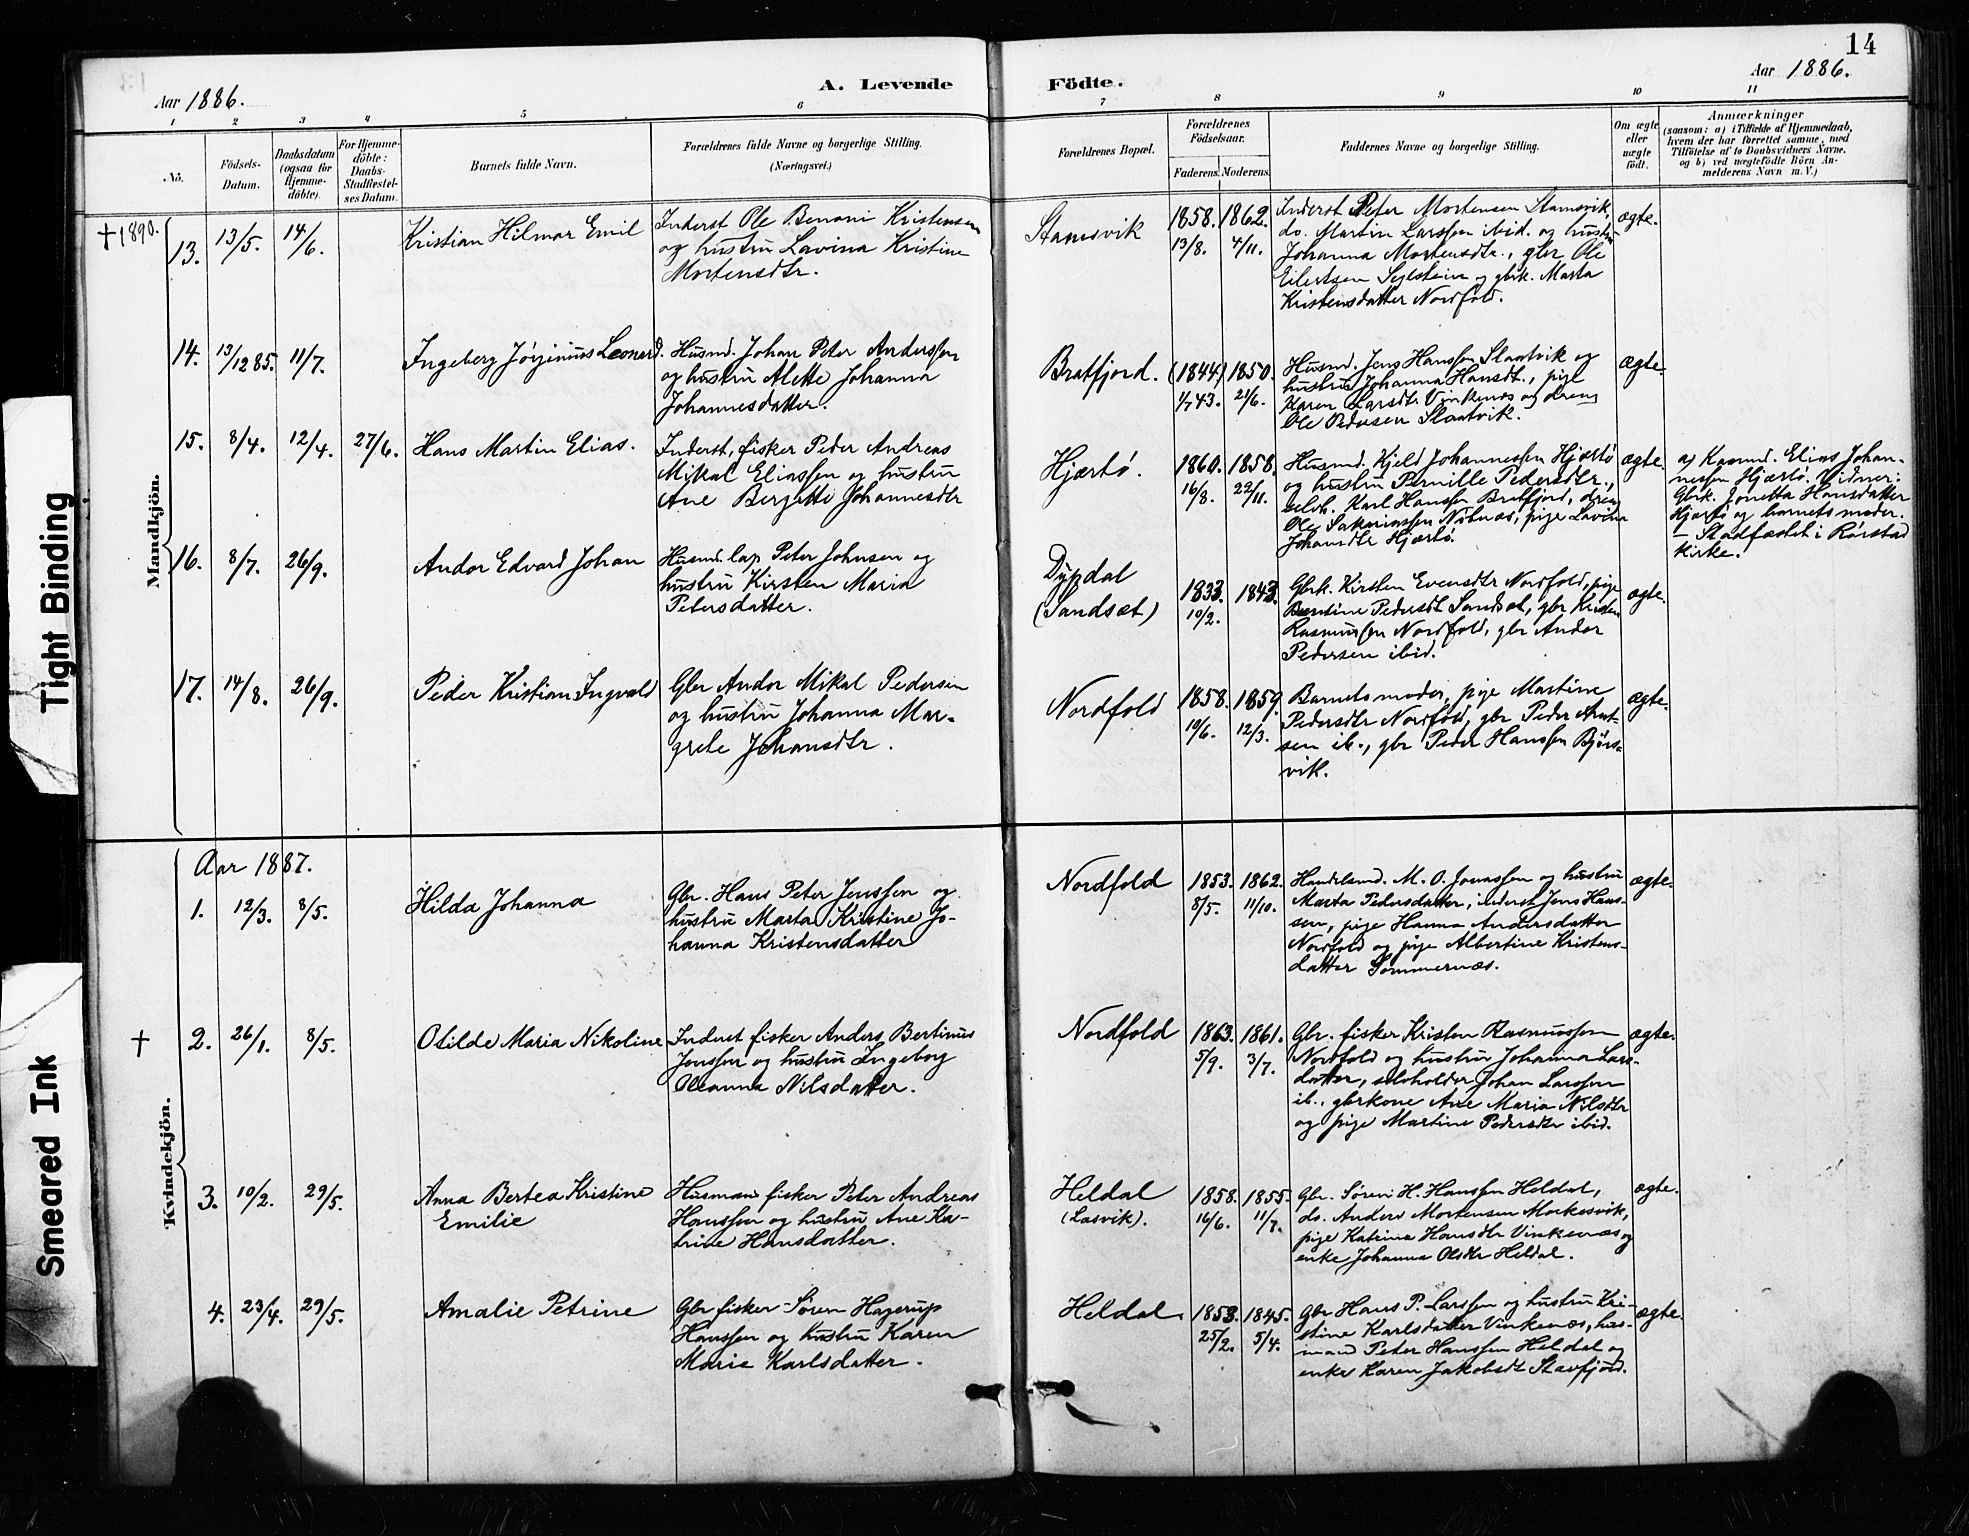 14
Aar 1886.
A. Levende Födte.
Aar 1886.
1 2 3 4 5 6 7 8 9 10 11
No.
Födsels-Datum.
Daabsdatum (ogsaa for Hjemme-döbte).
For Hjemme-döbte: Daabs-Stadfæstel-ses Datum.
Barnets fulde Navn.
Forældrenes fulde Navne og borgerlige Stilling.
(Næringsvei.)
Forældrenes Bopæl.
Forældrenes Födselsaar.
Faderens. Moderens.
Faddernes Navne og borgerlige Stilling.
Om ægte eller uægte födt.
Anmærkninger
(saasom: a) i Tilfælde af Hjemmedaab,
hvem der har forrettet samme, med
Tilföielse af to Daabsvidners Navne.
og b) ved uægtefödte Börn An-
melderens Navn m. V.)
Mandkjön.
†1890.
13. 13/5. 14/6.
Kristian Hilmar Emil
Inderst Ole Benoni Kristensen
og hustru Lavina Kristine
Mortensdtr.
Stamsvik
1858. 1862.
13/8. 4/11.
Inderst Peter Mortensen Stamsvik,
do. Martin Larssen ibid. og hustru
Johanna Mortensdtr., gbr Ole
Eilertsen og gbrk. Marta
Kristensdatter Nordfold.
ægte.
14. 13/12 85. 11/7.
Ingeberg Jörginus Leonard.
Husmd. Johan Peter Anderssen
og hustru Alette Johanna
Johannesdatter.
Bratfjord.
(1844) 1850.
1/7 43. 21/6.
Husmd. Jens Hanssen Slaatvik og
hustru Johanna Hansdt., pige
Karen Larsdtr Vinkenæs og dreng
Ole Pedersen Slaatvik.
ægte.
15. 8/4. 12/4. 27/6.
Hans Martin Elias.
Inderst, fisker Peder Andreas
Mikal Eliassen og hustru
Ane Bergitte Johannesdtr
Hjærtö.
1860. 1858.
16/8. 22/11.
Husmd. Kjeld Johannessen Hjærtö
og hustru Pernille Pedersdtr.,
selvh. Karl Hanssen Bratfjord, dreng
Ole Sakariassen, pige Lavina
Johansdtr Hjærtö.
ægte.
a) Elias Johan-
nessen Hjærtö. Vidner:
Gbrk. Jonetta Hansdatter
Hjærtö og barnets moder.
– Stadfæstet i Rörstad
kirke.
16. 8/7. 26/9.
Andor Edvard Johan
Husmd. lap Peter Johnsen og
hustru Kirsten Maria
Petersdatter.
Dypdal
(Sandsæt)
1833. 1843.
10/2.
Gbrk. Kirsten Evensdtr Nordfold, pige
Bentine Pedersdt Sandsæt, gbr Kristen
Rasmussen Nordfold, gbr Andor
Pedersen ibid.
ægte.
17. 14/8. 26/9.
Peder Kristian Ingvald
Gbr Andor Mikal Pedersen
og hustru Johanna Mar-
grete Johansdtr.
Nordfold
1858. 1859.
10/6. 12/3.
Barnets moder, pige Martine
Pedersdtr Nordfold, gbr Peder Arnt-
sen ib., gbr Peder Hanssen Bjørs-
vik.
ægte.
Kvindekjön.
Aar 1887.
1. 12/3. 8/5.
Hilda Johanna
Gbr. Hans Peter Jenssen og
hustru Marta Kristine Jo-
hanna Kristensdatter
Nordfold
1853. 1862.
8/5. 11/10.
Handelsmd. M. O. Jonassen og hustru
Marta Pedersdatter, inderst Jens Hans-
sen, pige Hanna Andersdatter
Nordfold og pige Albertine Kristens-
datter Sommernæs.
ægte.
†
2. 26/1. 8/5.
Otilde Maria Nikoline
Inderst fisker Anders Bertinus
Jenssen og hustru Ingeborg
Oleanna Nilsdatter.
Nordfold
1863. 1861.
5/9. 3/7.
Gbr. fisker Kristen Rasmussen
Nordfold og hustru Johanna Lars-
datter, selvholder Johan Larssen
ib., gbrkone Ane Maria Nilsdtr
og pige Martine Pedersdtr ibid.
ægte.
3. 10/2. 29/5.
Anna Bertea Kristine
Emilie
Husmand fisker Peter Andreas
Hanssen og hustru Ane Ka-
trine Hansdatter.
Heldal
(Lasvik).
1858. 1855.
16/6. 11/7.
Gbr. Sören H. Hanssen Heldal,
do. Anders Mortensen Morkesvik,
pige Katrina Hansdtr Vinkenæs og
enke Johanna Olsdtr Heldal.
ægte.
4. 23/4. 29/5.
Amalie Petrine
Gbr fisker Sören Hagerup
Hanssen og hustru Karen
Marie Karlsdatter.
Heldal
1853. 1845.
25/2. 5/4.
Gbr Hans P. Larssen og hustru Kri-
stine Karlsdatter Vinkenæs, hus-
mand Peter Hanssen Heldal og
enke Karen Jakobsdt Stavfjord.
ægte.
Tight Binding
Smeared Ink